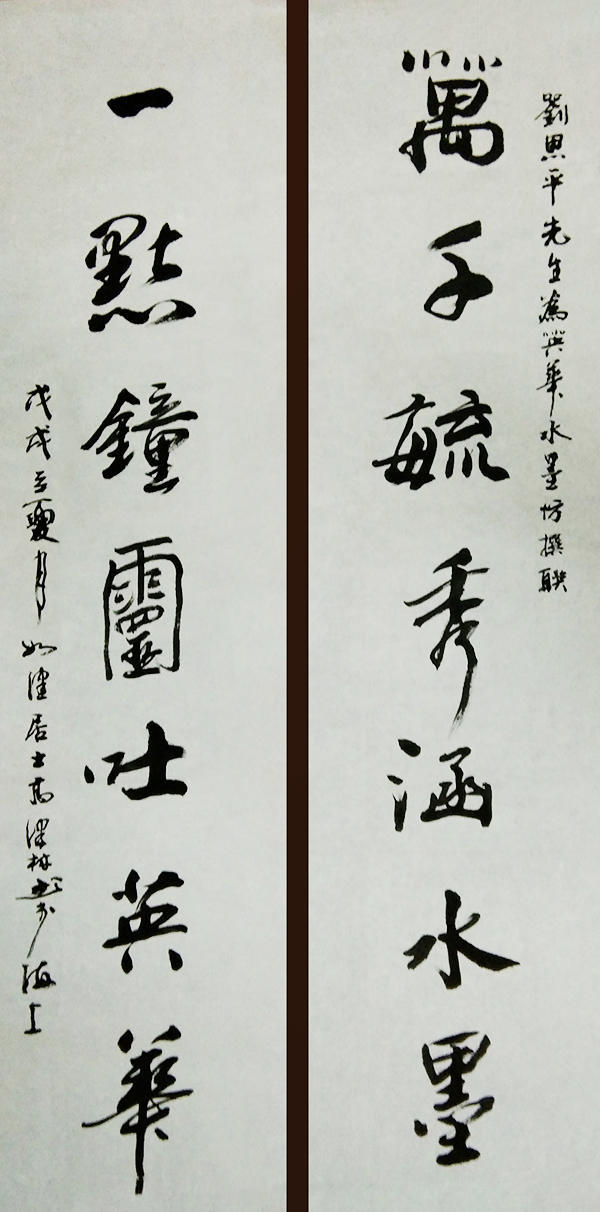 劉思平先生為英華水墨坊撰聯
萬千毓秀涵水墨
一點鐘靈吐英華
戊戌立夏月如津居士高澤林書於海上